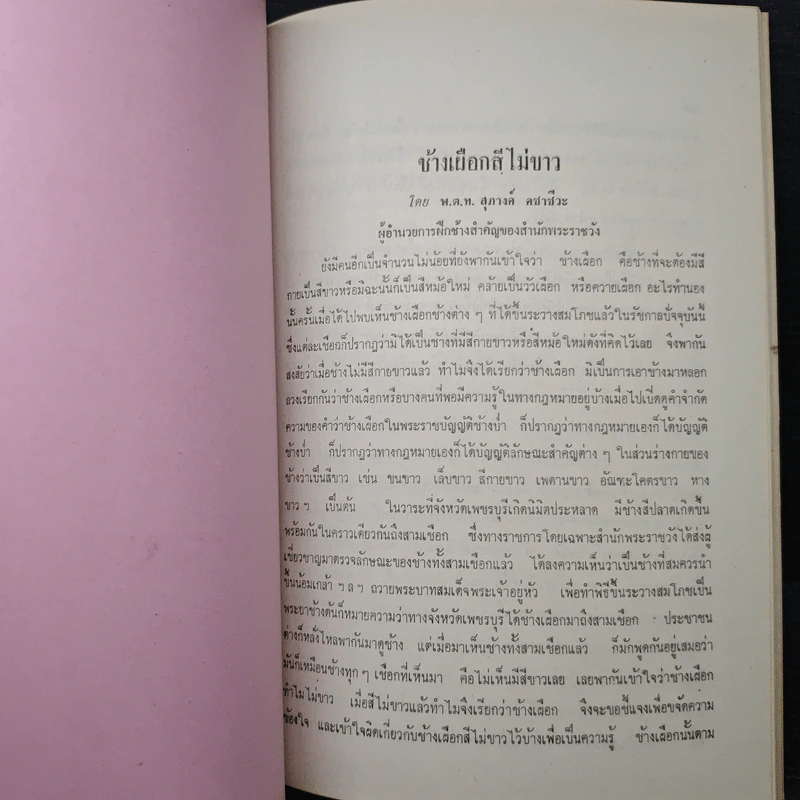 ช้างเผือกสีไม่ขาว
โดย พ.ต.ท. สุภางค์ คชาชีวะ
ผู้อำนวยการฝึกช้างสำคัญของสำนักพระราชวัง
ยังมีคนอีกเป็นจำนวนไม่น้อยที่ยังพากันเข้าใจว่า ช้างเผือก คือช้างที่จะต้องมีสี
กายเป็นสีขาวหรือมิฉะนั้นก็เป็นสีหม้อใหม่ คล้ายเป็นวัวเผือก หรือควายเผือก อะไรทำนอง
นั้นครั้นเมื่อได้ไปพบเห็นช้างเผือกช้างต่าง ๆ ที่ได้ขึ้นระวางสมโภชแล้วในรัชกาลปัจจุบันนี้
ซึ่งแต่ละเชือกก็ปรากฏว่ามิได้เป็นช้างที่มีสีกายขาวหรือสีหม้อใหม่ดังที่คิดไว้เลย จึงพากัน
สงสัยว่าเมื่อช้างไม่มีสีกายขาวแล้ว ทำไมจึงได้เรียกว่าช้างเผือก มิเป็นการเอาช้างมาหลอก
ลวงเรียกกันว่าช้างเผือกหรือบางคนที่พอมีความรู้ในทางกฎหมายอยู่บ้างเมื่อไปเปิดดูคำจำกัด
ความของคำว่าช้างเผือกในพระราชบัญญัติช้างป่า ก็ปรากฏว่าทางกฎหมายเองก็ได้บัญญัติ
ช้างป่า ก็ปรากฏว่าทางกฎหมายเองก็ได้บัญญัติลักษณะสำคัญต่าง ๆ ในส่วนร่างกายของ
ช้างว่าเป็นสีขาว เช่น ขนขาว เล็บขาว สีกายขาว เพดานขาว อัณฑะโคตรขาว หาง
ขาว ฯ เป็นต้น ในวาระที่จังหวัดเพชรบุรีเกิดนิมิตประหลาด มีช้างสีปลาดเกิดขึ้น
พร้อมกันในคราวเดียวกันถึงสามเชือก ซึ่งทางราชการโดยเฉพาะสำนักพระราชวังได้ส่งผู้
เชี่ยวชาญมาตรวจลักษณะของช้างทั้งสามเชือกแล้ว ได้ลงความเห็นว่าเป็นช้างที่สมควรนำ
ขึ้นน้อมเกล้า ฯ ล ฯ ถวายพระบาทสมเด็จพระเจ้าอยู่หัว เพื่อทำพิธีขึ้นระวางสมโภชเป็น
พระยาช้างต้นก็หมายความว่าทางจังหวัดเพชรบุรีได้ช้างเผือกมาถึงสามเชือก ประชาชน
ต่างก็หลั่งไหลพากันมาดูช้าง แต่เมื่อมาเห็นช้างทั้งสามเชือกแล้ว ก็มักพูดกันอยู่เสมอว่า
มันก็เหมือนช้างทุก ๆ เชือกที่เห็นมา คือไม่เห็นมีสีขาวเลย เลยพากันเข้าใจว่าช้างเผือก
ทำไมไม่ขาว เมื่อสีไม่ขาวแล้วทำไมจึงเรียกว่าช้างเผือก จึงจะขอชี้แจงเพื่อขจัดความ
ข้องใจ และเข้าใจผิดเกี่ยวกับช้างเผือกสีไม่ขาวไว้บ้างเพื่อเป็นความรู้ ช้างเผือกนั้นตาม